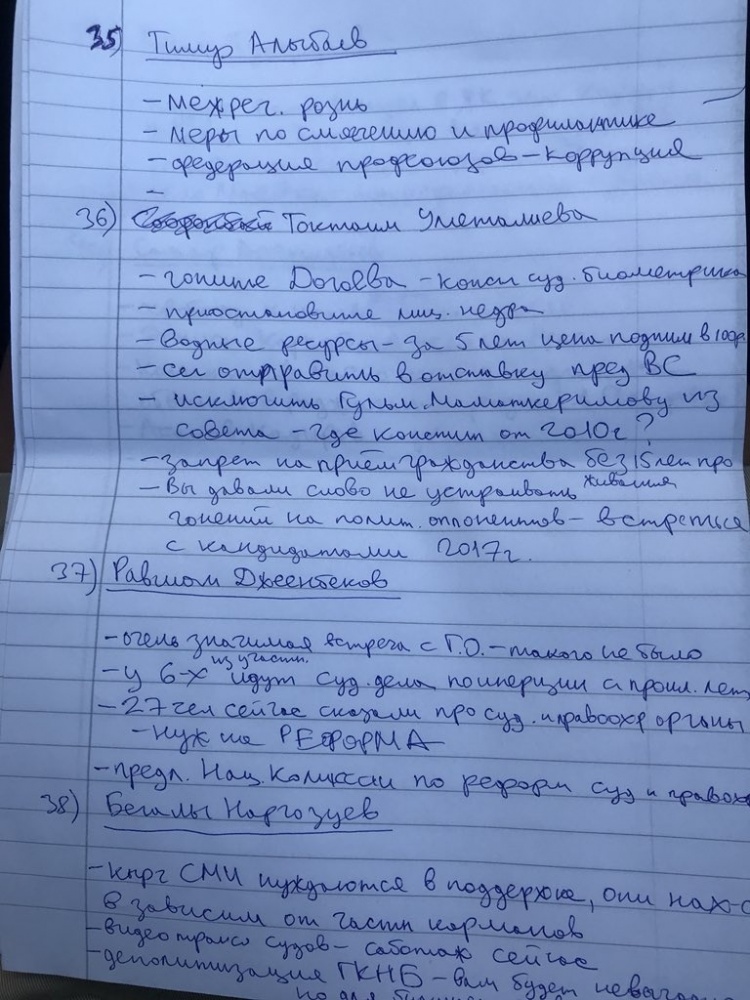 35) Тимур Алыбаев
- межрег. рознь
- меры по смягчению и профилактике
- федерация профсоюзов - коррупция
-
36) Токтаим Уметалиева
- гоните Догоева - конст суд. биометрика
- приостановите лиц. недра
- Водные ресурсы - за 5 лет цена подним в 100р
- отправить в отставку пред ВС
- исключить Гульм. Маматкеримову из
совета - где констит от 2010г?
- запрет на приём гражданства без 15 лет про
живания
- Вы давали слово не устраивать
гонений на полит. оппонентов - встреться
с кандидатами 2017г.
37) Равшан Джеенбеков
- очень значимая встреча с Г.О. - такого не было
из участн.
- у 6-х идут суд. дела по инерции с прошл. лет
- 27 чел сейчас сказали про суд. и правоохр органы
- нужна РЕФОРМА
- предл. Нац. Комиссии по реформ суд и правоох
38) Бегалы Наргозуев
- кырг СМИ нуждаются в поддержке, они нах-с
в зависим от частн карманов
- видеотрансл судов - саботаж сейчас
- деполитизация ГКНБ - вам будет невыгодно
но для